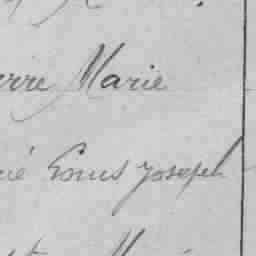 erre Marie
né Louis Joseph